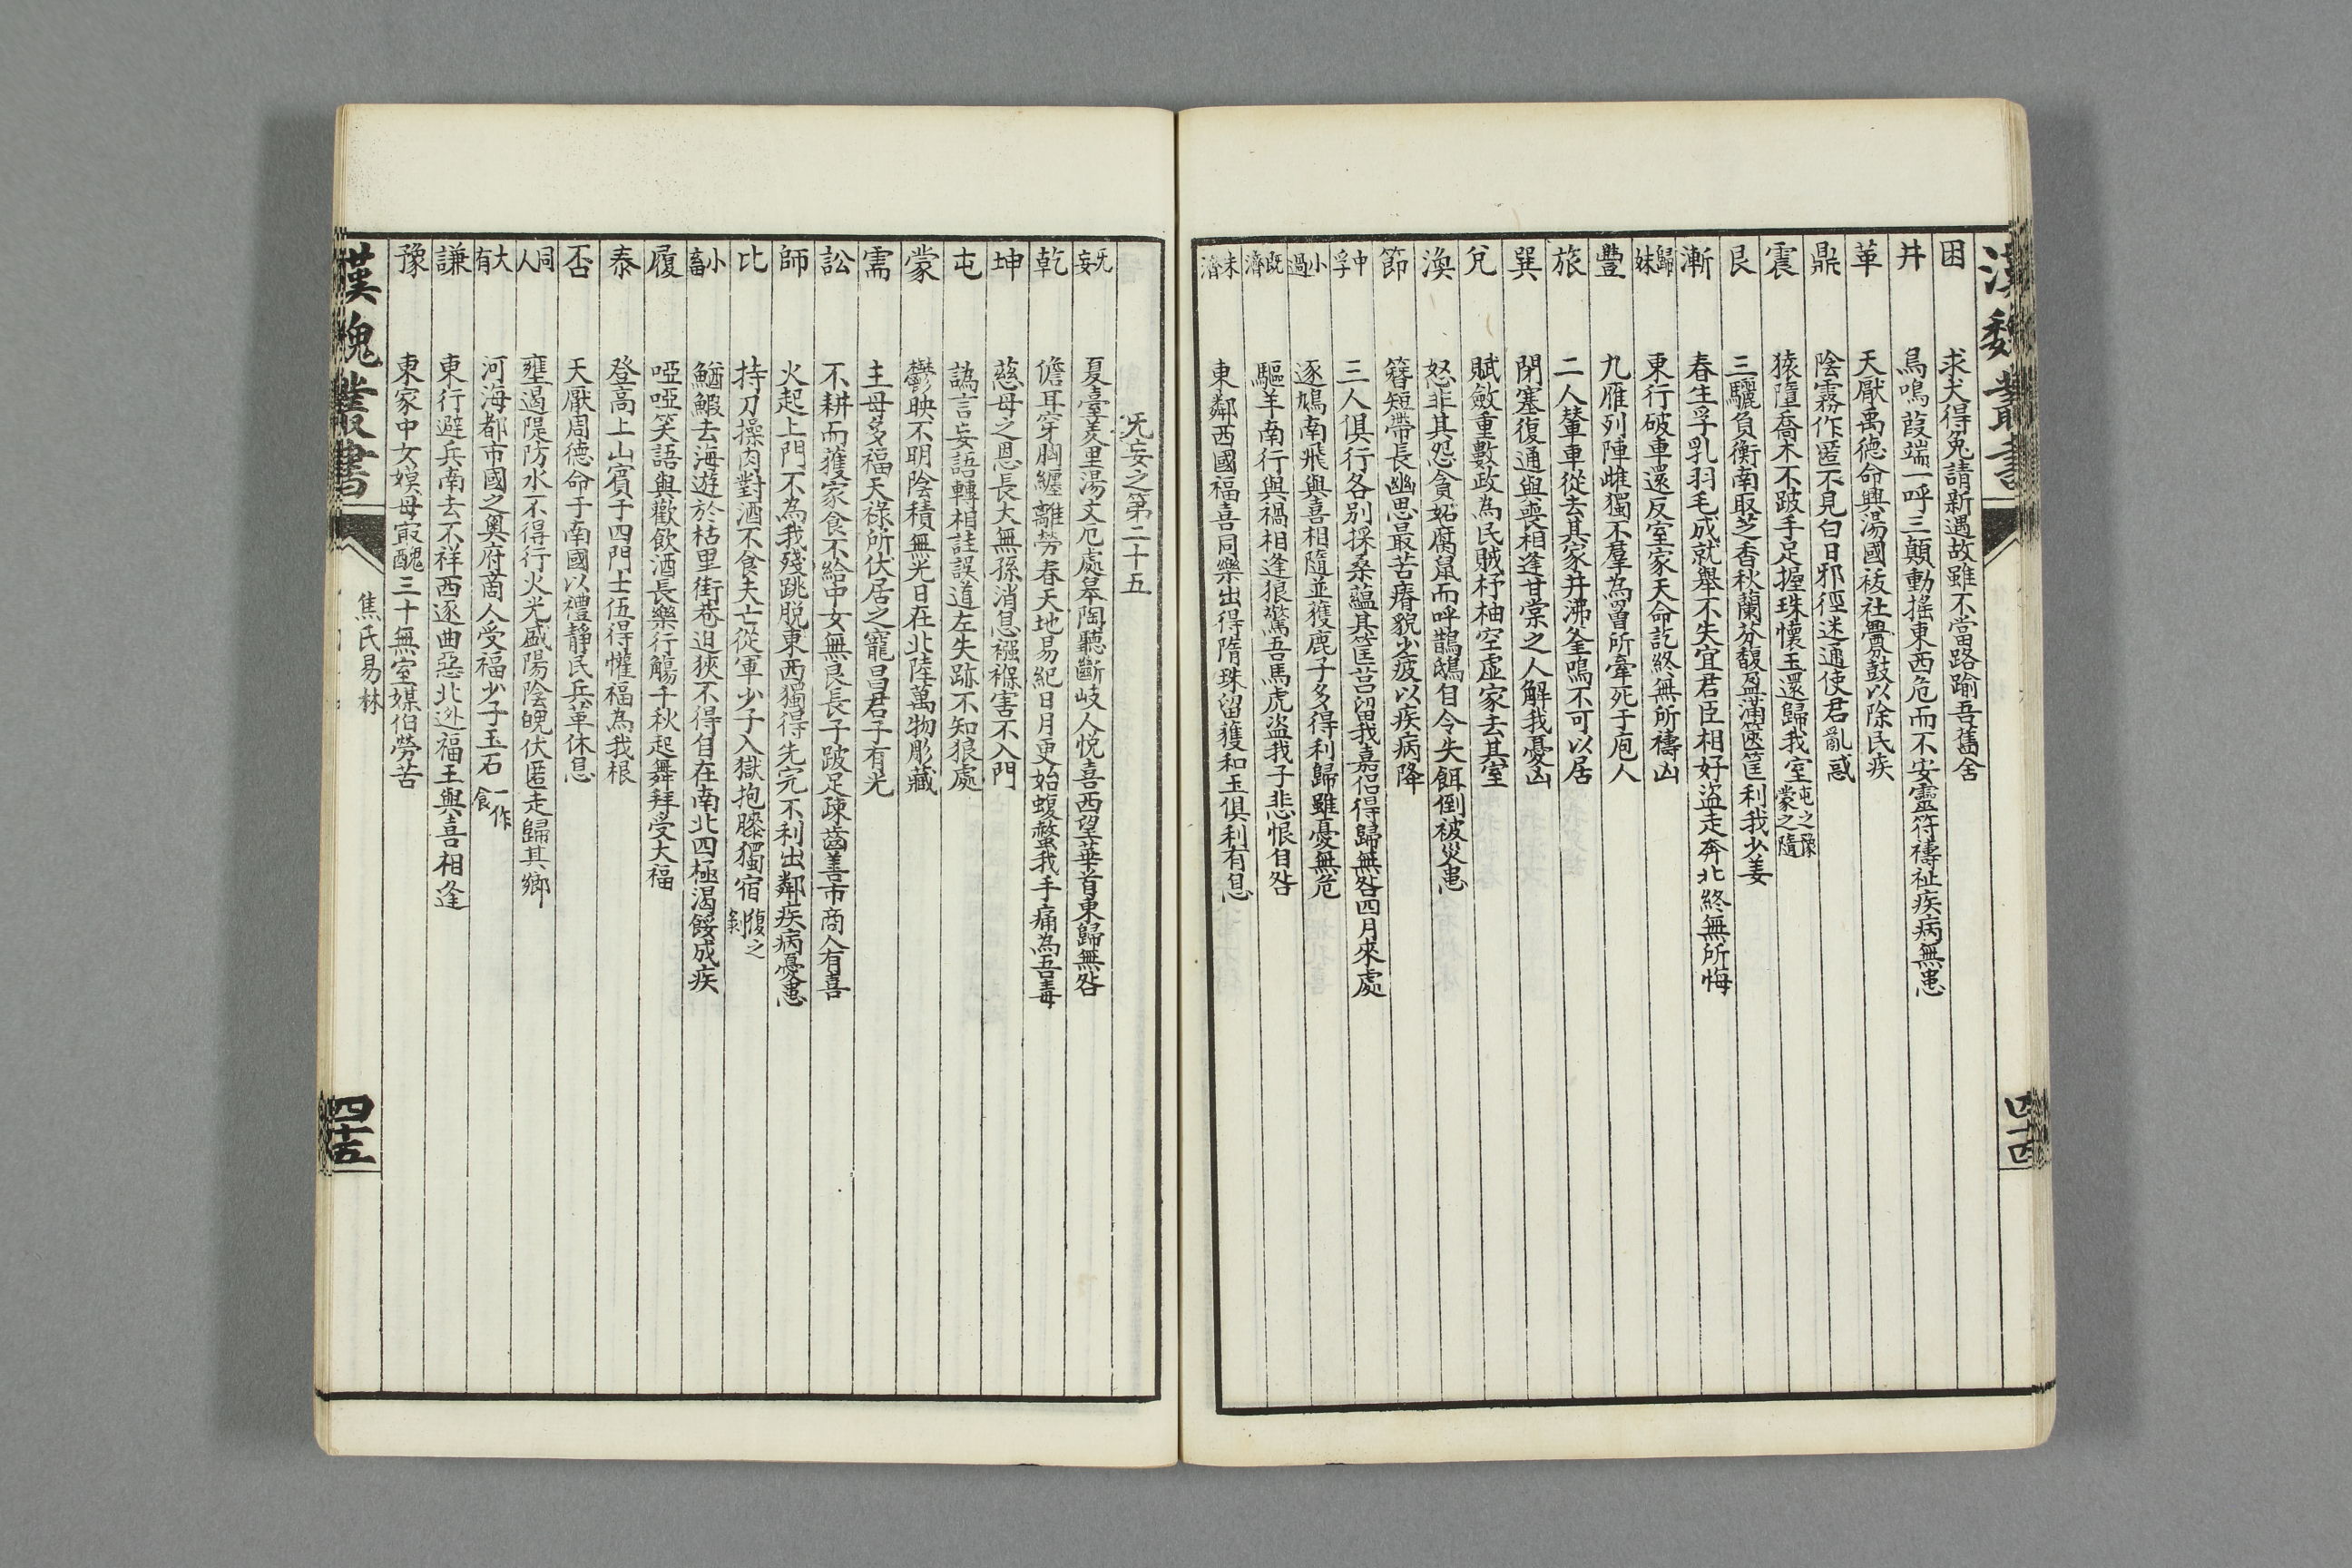 漢魏叢書
四十四
困 求犬得兔請新遇故雖不當路踰吾舊舍
井 烏鳴葭端一呼三顛動搖東西危而不安靈符禱祉疾病無患
革 天厭禹德命興湯國祓社釁鼓以除民疾
鼎 陰霧作匿不見白日邪徑迷通使君亂惑
震 猿墮喬木不跛手足握珠懷玉還歸我室 屯之豫蒙之隨
艮 三驪負衡南取芝香秋蘭芬馥盈滿篋筐利我少姜
漸 春生孚乳羽毛成就舉不失宜君臣相好盜走奔北終無所悔
歸妹 東行破車還反室家天命訖終無所禱凶
豐 九雁列陣雌獨不羣為罾所牽死于庖人
旅 二人輦車從去其家井沸釜鳴不可以居
巽 閉塞復通與喪相逢甘棠之人解我憂凶
兌 賦斂重數政為民賊杼柚空虛家去其室
渙 怒非其怨貪妬腐鼠而呼鵲鴟自令失餌倒被災患
節 簪短帶長幽思最苦瘠貌少疲以疾病降
中孚 三人俱行各别採桑蘊其筐筥留我嘉侶得歸無咎四月來處
小過 逐鳩南飛與喜相隨並獲鹿子多得利歸雖憂無危
既濟 驅羊南行與禍相逢狼驚吾馬虎盜我子悲恨自咎
未濟 東鄰西國福喜同樂出得隋珠留獲和玉俱利有息
旡妄之第二十五
旡妄 夏臺羑里湯文厄處皋陶聽斷岐人悅喜西望華首東歸無咎
乾 儋耳穿胸纏離勞春天地易紀日月更始蝮螫我手痛為吾毒
坤 慈母之恩長大無孫消息襁褓害不入門
屯 譌言妄語轉相詿誤道左失跡不知狼處
蒙 鬱映不明陰積無光日在北陸萬物彫藏
需 王母多福天祿所伏居之寵昌君子有光
訟 不耕而獲家食不給中女無良長子跛足疎齒善市商人有喜
師 火起上門不為我殘跳脫東西獨得先完不利出鄰疾病憂患
比 持刀操肉對酒不食夫亡從軍少子入獄抱膝獨宿 復之剝
小畜 鰌鰕去海遊於枯里街巷迫狹不得自在南北四極渴餒成疾
履 啞啞笑語與歡飲酒長樂行觴千秋起舞拜受大福
泰 登高上山賓于四門士伍得懽福為我根
否 天厭周德命于南國以禮靜民兵革休息
同人 壅遏隄防水不得行火光盛陽陰蜺伏匿走歸其鄉
大有 河海都市國之奧府商人受福少子玉石 一作食
謙 東行避兵南去不祥西逐曲惡北迯福王與喜相逢
豫 東家中女嫫母㝡醜三十無室媒伯勞苦
漢魏叢書
焦氏易林
四十五